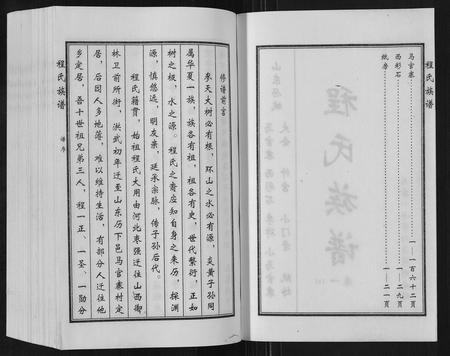 程氏族谱
马官寨
1—162页
西彩石
1—29页
纸房
1—21页
修谱前言
参天大树必有根，环山之水必有源，炎黄子孙同
属华夏一族，族各有祖，祖各有史，世代繁衍，正如
树之根，水之源。程氏之裔应知自身之来历，探渊
源，慎悠远，明友亲，延承宗脉，传子孙后代。
程氏籍贯，始祖程氏大用由河北枣强迁往山西御
林卫前所街，洪武初年迁至山东历下邑马官寨村定
居，后因人多地薄，难以维持生活，有部分人迁往他
乡定居，吾十世祖兄弟三人，程一正、一圣、一勋分
程氏族谱
谱序